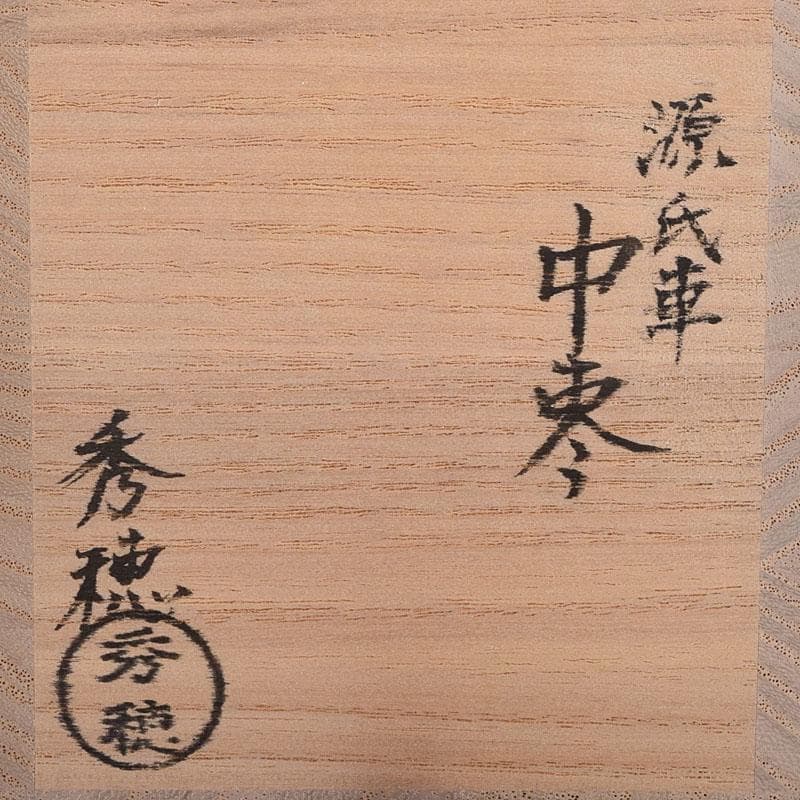 源氏車
中棗
秀穂
秀穂